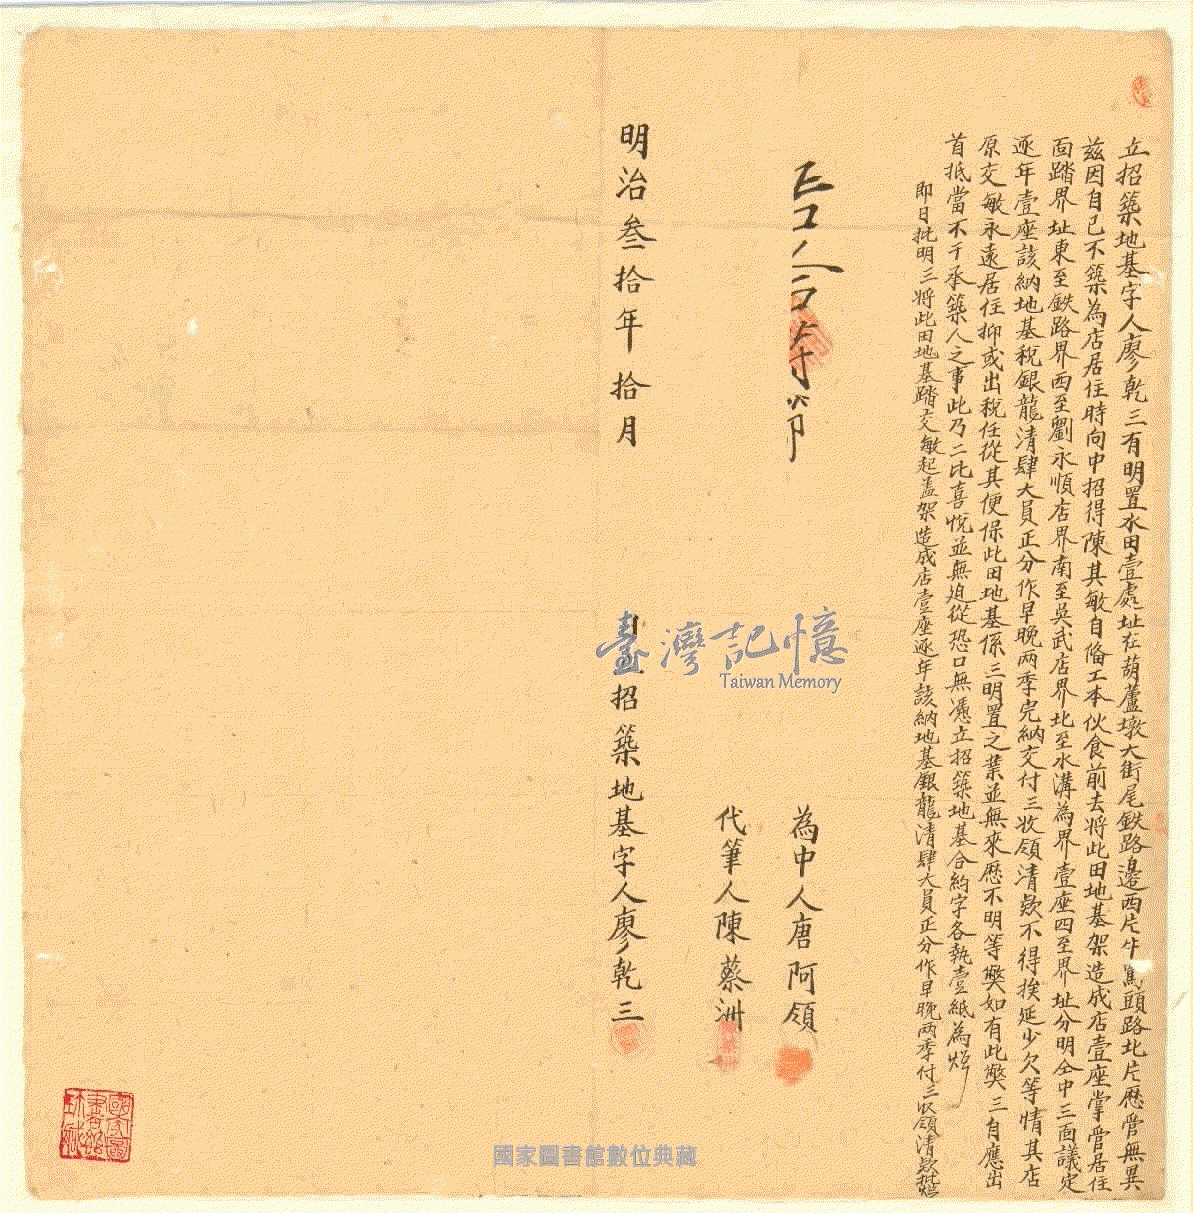 立招築地基字人廖乾三有明置水田壹處址在葫蘆墩大街尾鉄路邊西片牛罵頭路北片歷管無異
茲因自己不築為店居住時向中招得陳其敏自俻工本伙食前去將此田地基架造成店壹座掌管居住
面踏界址東至鉄路界西至劉永順店界南至吳武店界北至水溝為界壹座四至界址分明仝中三面議定
逐年壹座該納地基稅銀龍清肆大員正分作早晚兩季完納交付三收領清欵不得挨延少欠等情其店
原交敏永遠居住抑或出稅任從其便保此田地基係三明置之業並無來歷不明等弊如有此弊三自應出
首抵當不干承築人之事此乃二比喜悅並無迫從恐口無憑立招築地基合約字各執壹紙為炤
即日批明三將此田地基踏交敏起盖架造成店壹座逐年該納地基銀龍清肆大員正分作早晚兩季付三收領清欵批炤
為中人唐阿領
代筆人陳蔡洲
明治叁拾年拾月
日招築地基字人廖乾三
臺灣記憶
Taiwan Memory
國家圖書館數位典藏
國家圖書館珍藏